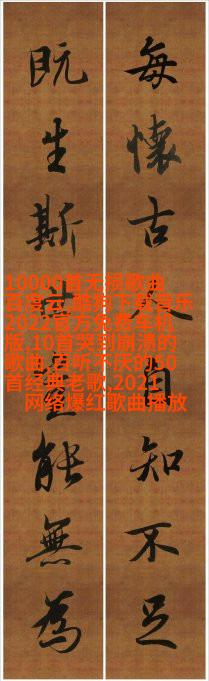 每懷古人自知不足
既生斯世豈能無為
10000首无损歌曲
百度云,酷狗下载音乐
2022官方免费车机
版,10首哭到崩溃的
歌曲,百听不厌的50
首经典老歌,2021
网络爆红歌曲播放